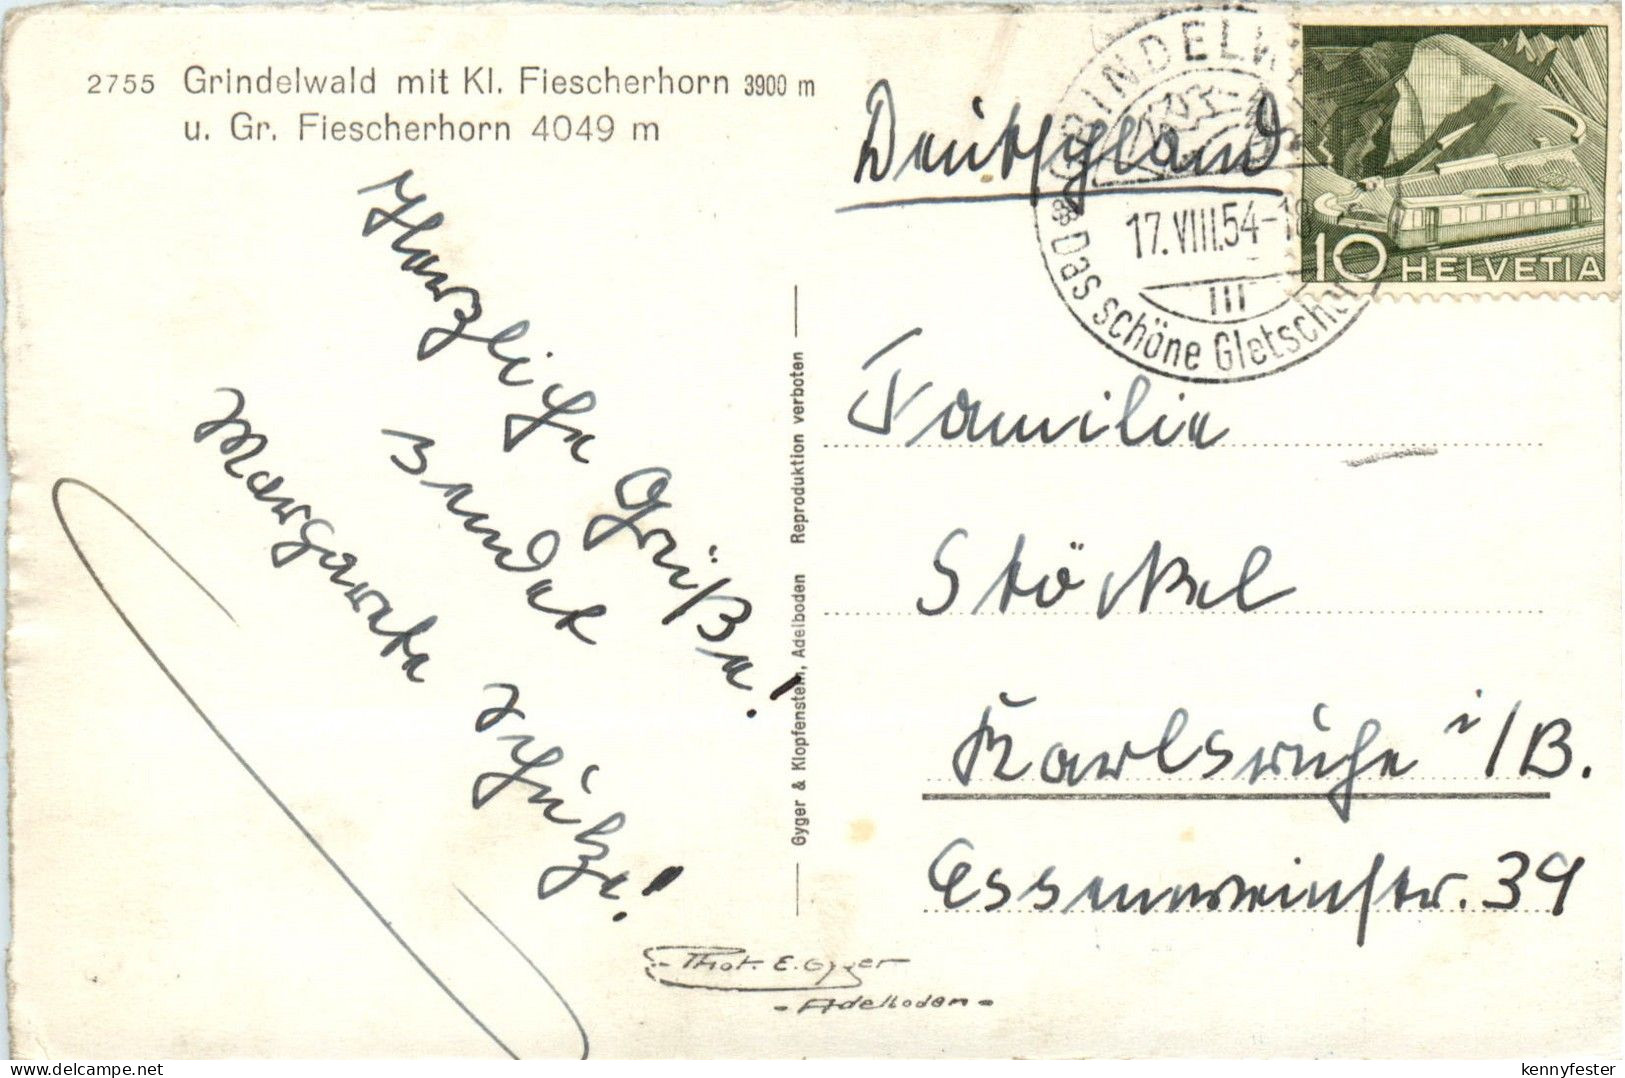 2755 Grindelwald mit Kl. Fiescherhorn 3900 m
u. Gr. Fiescherhorn 4049 m
Herzliche Grüße!
sendet
Margarete Schütze!
Gyger & Klopfenstein, Adelboden Reproduktion verboten
Phot. E. Gyger
- Adelboden -
Deutschland
GRINDELW
17.VIII.54-18
Das schöne Gletsch
10 HELVETIA
Familie
Stöckel
Karlsruhe i/B.
Essenweinstr. 39
delcampe.net
kennyfester